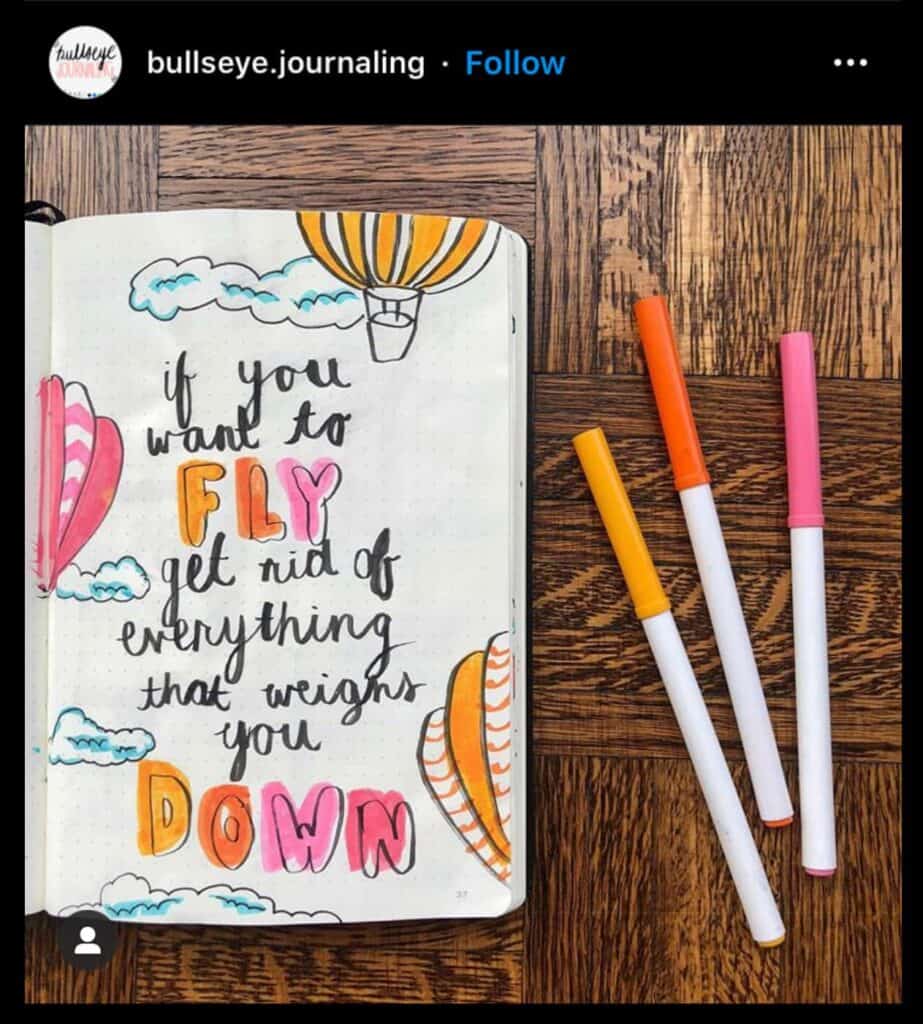 bullseye
JOURNALING
bullseye.journaling · Follow
if you
want to
FLY
get rid of
everything
that weighs
you
DOWN
37